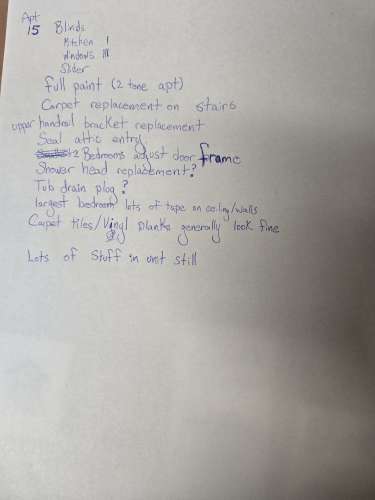 Apt
15 Blinds
Kitchen I
Windows III
Slider
full paint (2 tone apt)
Carpet replacement on stairs
upper handrail bracket replacement
Seal attic entry
2 Bedrooms adjust door frame
Shower head replacement?
Tub drain plug?
largest bedroom lots of tape on ceiling/walls
Carpet tiles/Vinyl planks generally look fine
Lots of Stuff in unit still